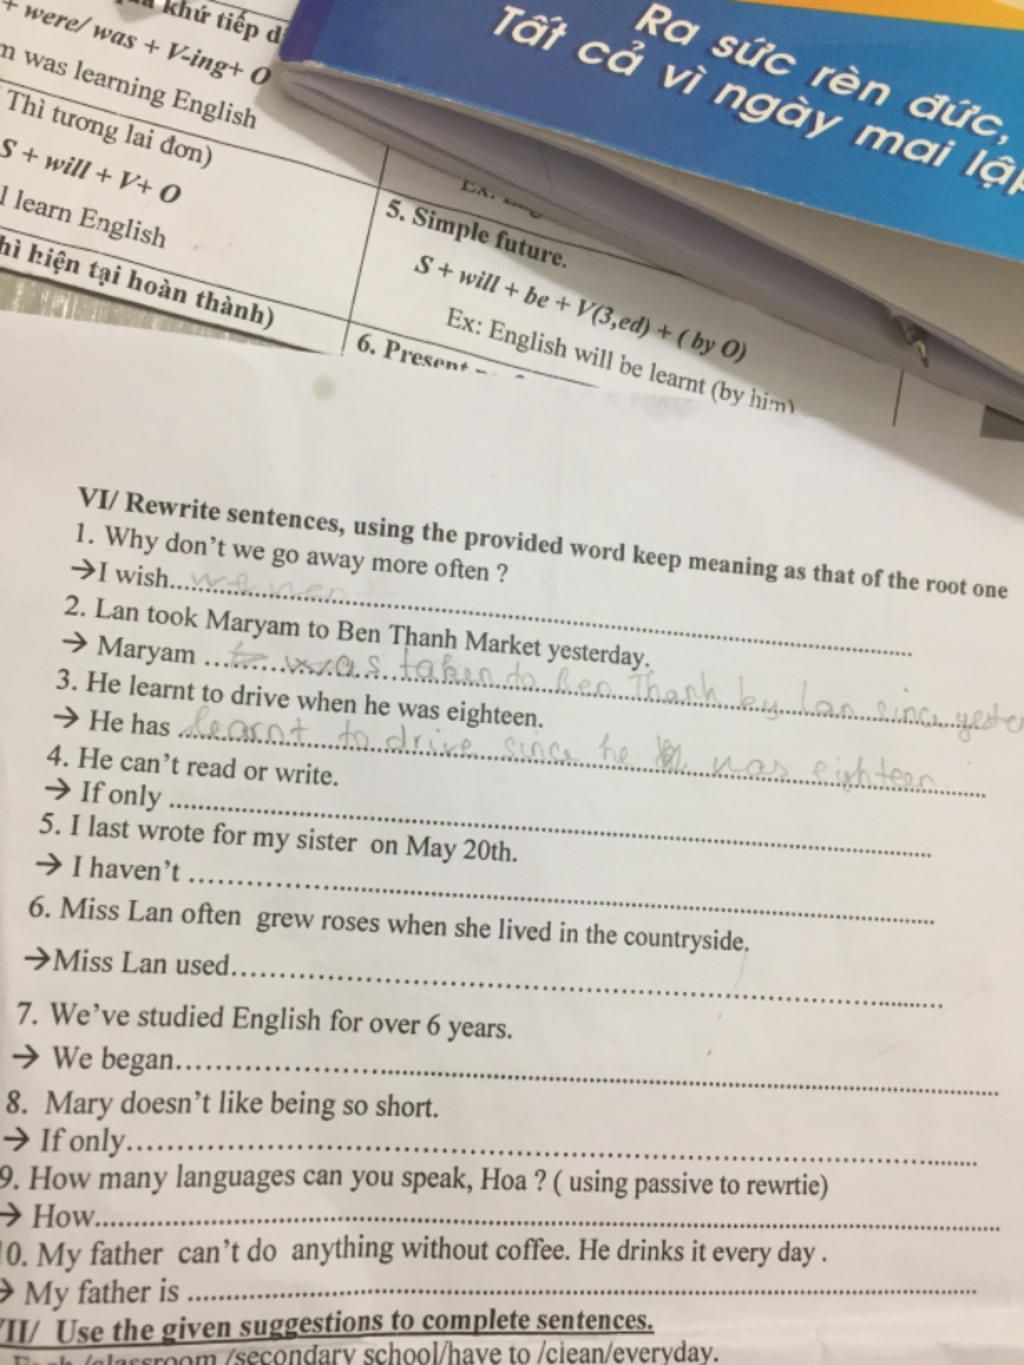 khứ tiếp d
+ were/ was + V-ing+ O
m was learning English
Thì tương lai đơn)
S + will + V+ O
l learn English
hì hiện tại hoàn thành)
Ra sức rèn đức,
Tất cả vì ngày mai lập
5. Simple future.
S + will + be + V(3,ed) + ( by O)
Ex: English will be learnt (by him)
6. Present
VI/ Rewrite sentences, using the provided word keep meaning as that of the root one
1. Why don't we go away more often ?
→I wish.. we went
2. Lan took Maryam to Ben Thanh Market yesterday.
→ Maryam ... was taken to Ben Thanh by Lan since yester
3. He learnt to drive when he was eighteen.
→ He has learnt to drive since he was eighteen
4. He can't read or write.
→ If only ...
5. I last wrote for my sister on May 20th.
→ I haven't ...
6. Miss Lan often grew roses when she lived in the countryside.
→Miss Lan used...
7. We've studied English for over 6 years.
→ We began...
8. Mary doesn't like being so short.
→ If only...
9. How many languages can you speak, Hoa ? ( using passive to rewrtie)
→ How...
10. My father can't do anything without coffee. He drinks it every day .
→ My father is ...
VII/ Use the given suggestions to complete sentences.
/classroom /secondary school/have to /clean/everyday.